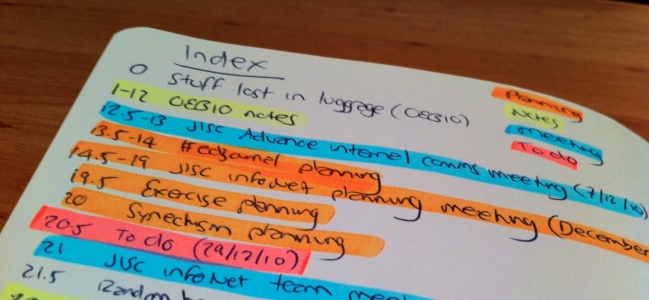 Index
0 Stuff lost in luggage (OEB10)
1-12 OEB10 notes
12.5-13 JISC Advance internal comms meeting (7/12/10)
13.5-14 #edjournel planning
14.5-19 JISC infoNet planning meeting (December
19.5 Exercise planning
20 Synechism planning
20.5 To do (29/12/10)
21 JISC infoNet team
21.5 Random
Planning
Notes
Meeting
To do